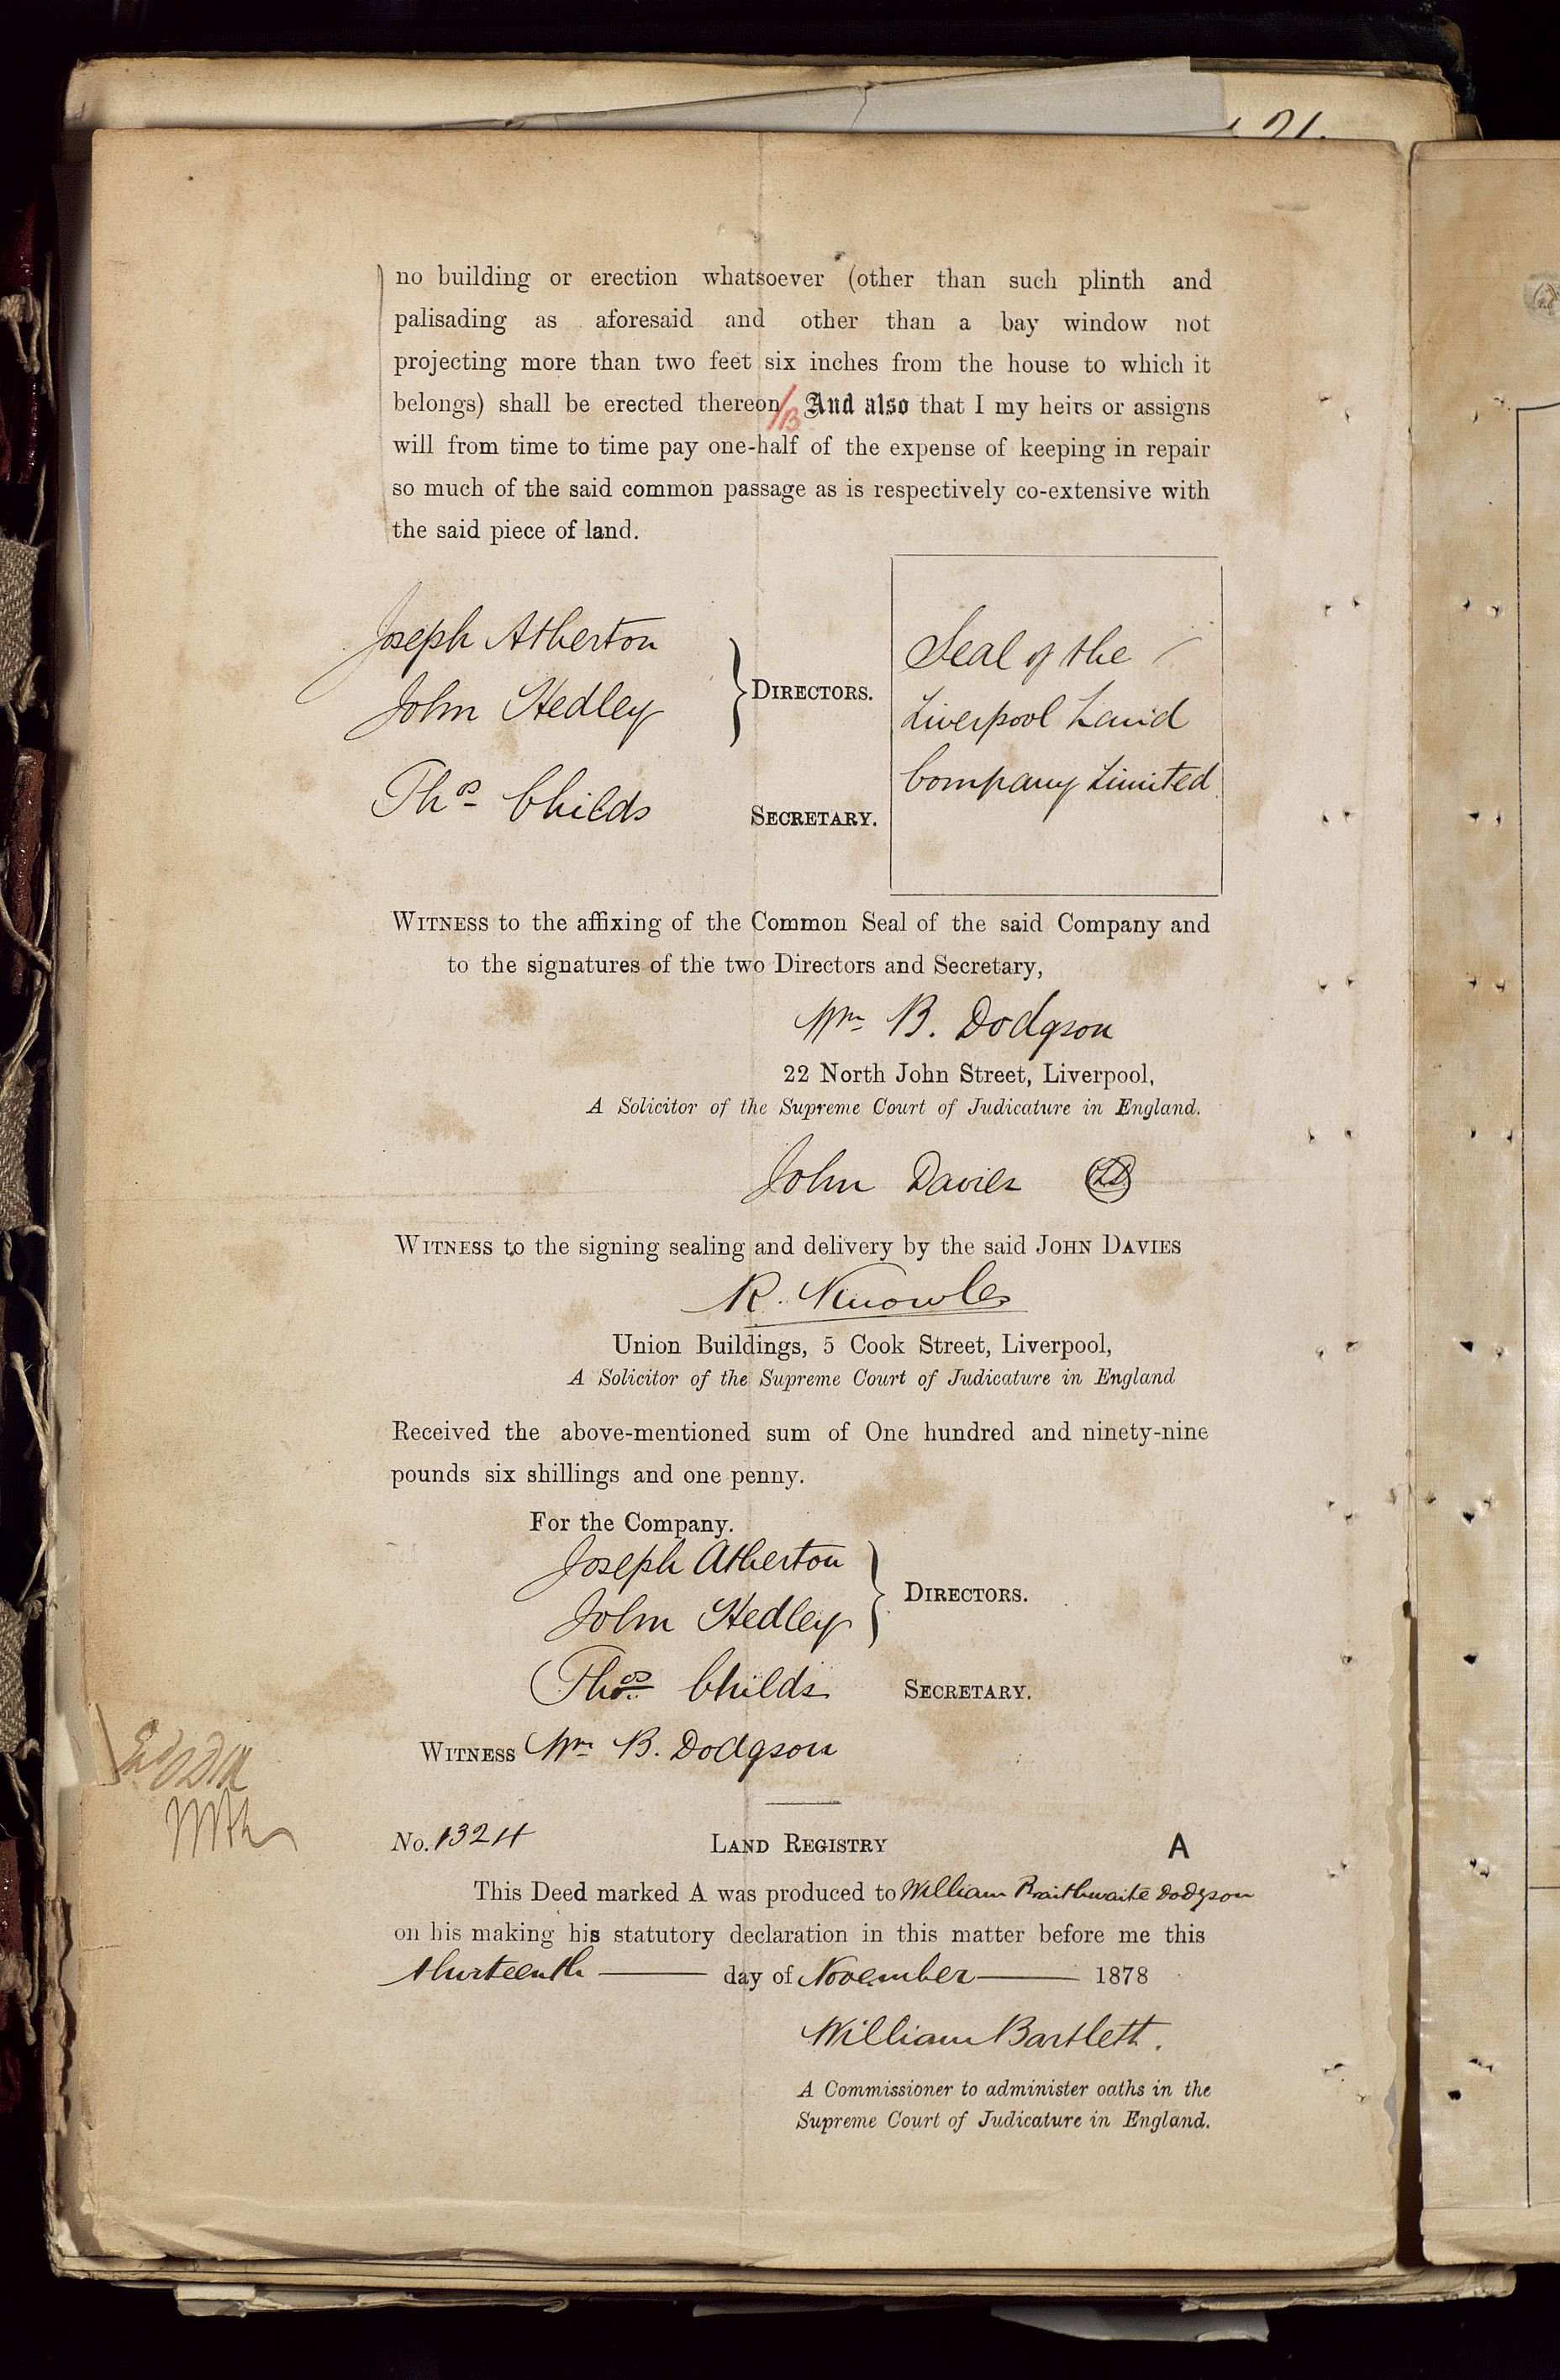 no building or erection whatsoever (other than such plinth and
palisading as aforesaid and other than a bay window not
projecting more than two feet six inches from the house to which it
belongs) shall be erected thereon/B And also that I my heirs or assigns
will from time to time pay one-half of the expense of keeping in repair
so much of the said common passage as is respectively co-extensive with
the said piece of land.
Joseph Atherton
John Hedley
DIRECTORS.
Thos Childs
SECRETARY.
Seal of the
Liverpool Land
Company Limited
WITNESS to the affixing of the Common Seal of the said Company and
to the signatures of the two Directors and Secretary,
Wm B. Dodgson
22 North John Street, Liverpool,
A Solicitor of the Supreme Court of Judicature in England.
John Davies LS
WITNESS to the signing sealing and delivery by the said JOHN DAVIES
R. Knowles
Union Buildings, 5 Cook Street, Liverpool,
A Solicitor of the Supreme Court of Judicature in England
Received the above-mentioned sum of One hundred and ninety-nine
pounds six shillings and one penny.
For the Company.
Joseph Atherton
John Hedley
DIRECTORS.
Thos. Childs
SECRETARY.
WITNESS Wm B. Dodgson
No. 1324 LAND REGISTRY A
This Deed marked A was produced to William Braithwaite Dodgson
on his making his statutory declaration in this matter before me this
thirteenth day of November 1878
William Bartlett.
A Commissioner to administer oaths in the
Supreme Court of Judicature in England.